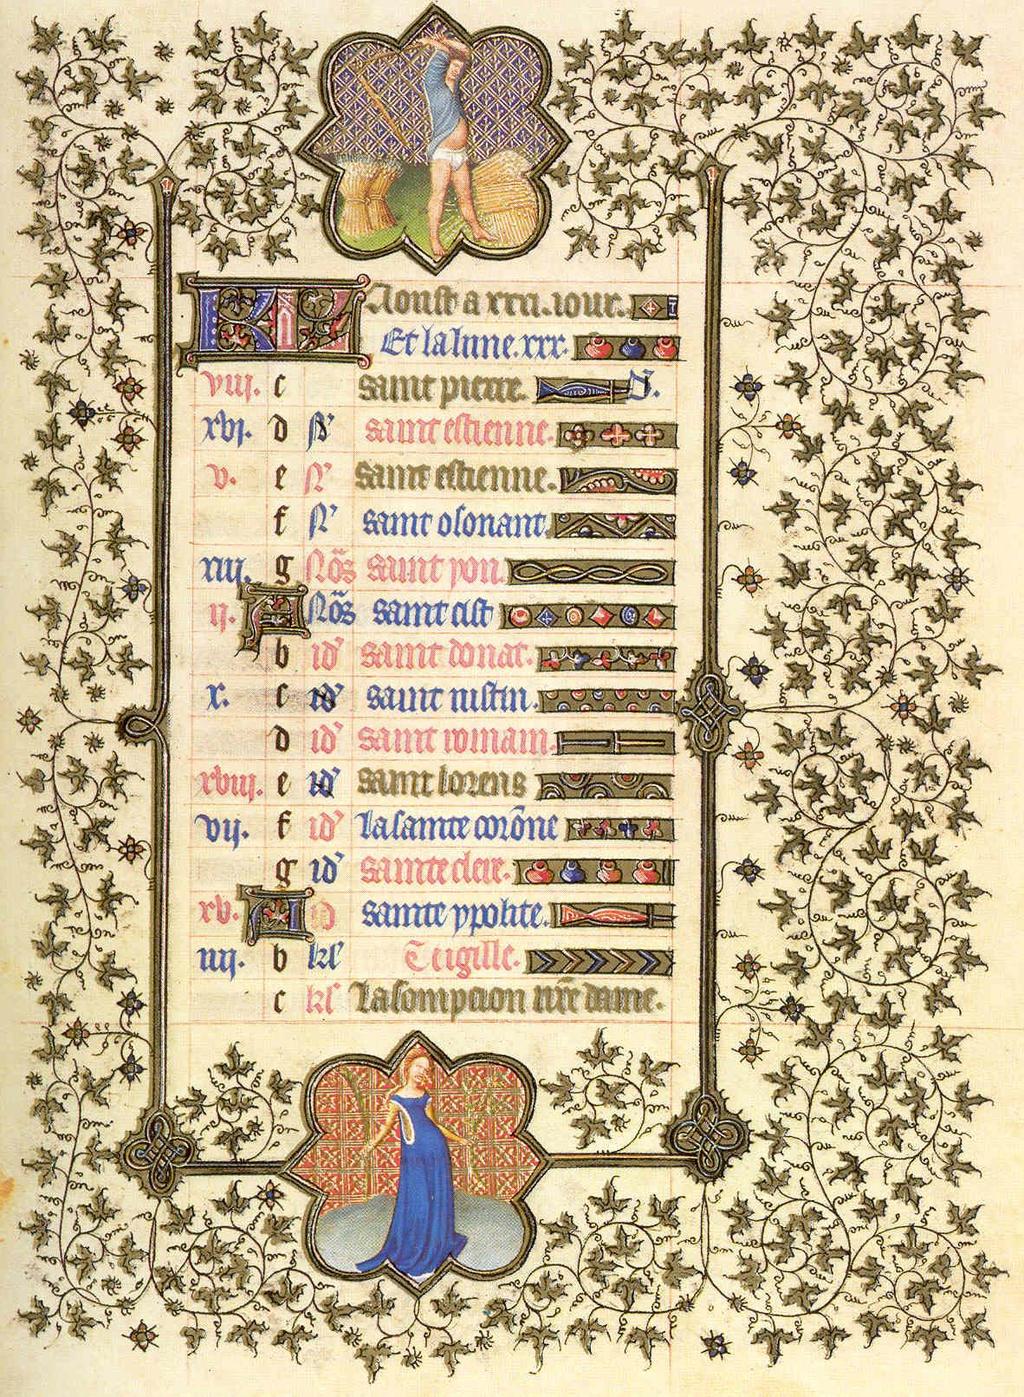 KL Aoust a xxxi. iour.
Et la lune. xxx.
viii. c saint pierre.
xvi. d saint estienne.
v. e saint estienne.
f saint osonant.
xiii. g Noãs saint yon.
ii. A Noãs saint cist
b id' saint donat.
x. c id' saint iustin.
d id' saint romain.
xviii. e id' saint lorens
vii. f id' la sainte corõne
g id' sainte clere.
xv. A id sainte ypolite.
iiii. b kl' vigille.
c kl' lasompcion nr̃e dame.